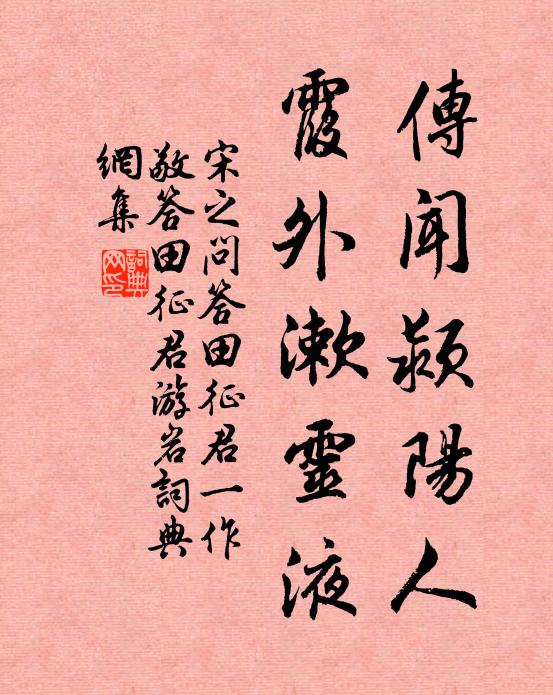 傳聞潁陽人
霞外漱靈液
宋之问答田征君一作
敬答田征君游岩詞典
網集
詞典
网印